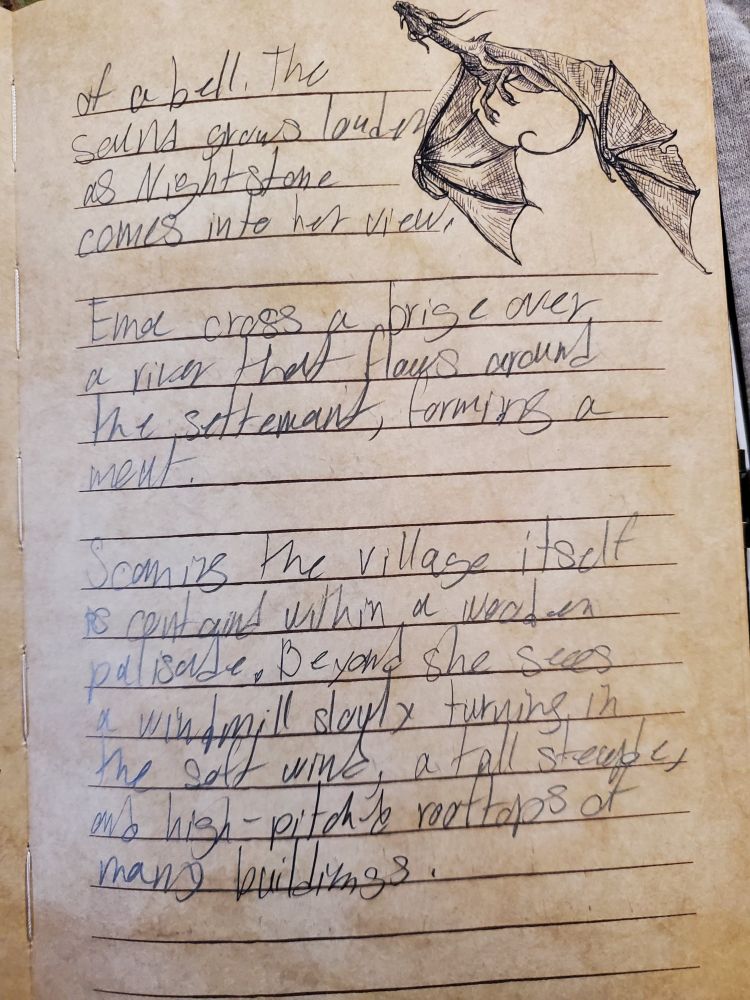 of a bell. The
sound grows louder
as Nightstone
comes into her view.
Emae cross a brige over
a river that flows around
the settemant, forming a
meut.
Scaning the village itself
is containd within a wooden
palisade. Beyond she sees
a windmill slayly turning in
the soft wind, a tall steeple,
and high-pitch-b rooftops of
many buildings.